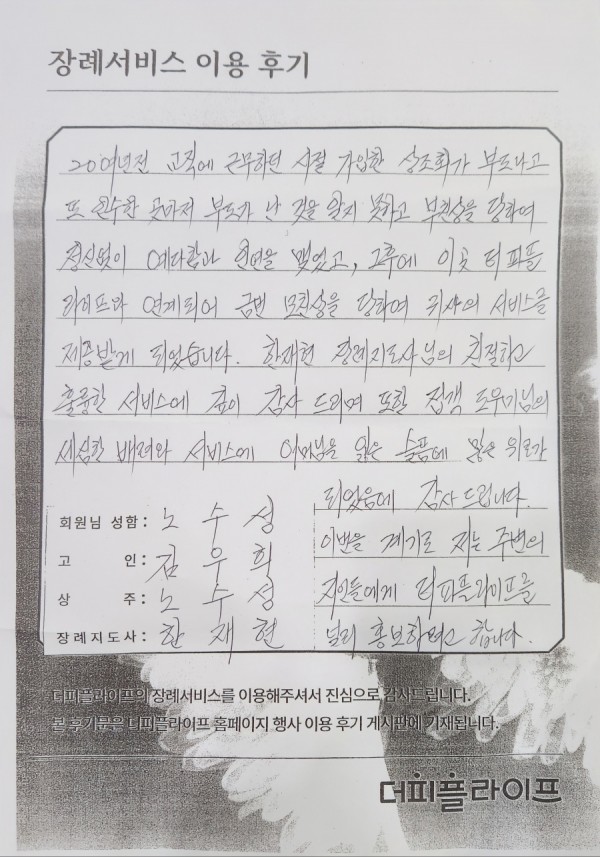 장례서비스 이용 후기
20여년전 교직에 근무하던 시절 가입한 상조회가 부도나고
또 인수한 곳마저 부도가 난 것을 알지 못하고 부친상을 당하여
정신없이 예다함과 인연을 맺었고, 그후에 이곳 더 피플
라이프와 연계되어 금번 모친상을 당하여 귀사의 서비스를
제공받게 되었습니다. 한재현 장례지도사님의 친절하고
훌륭한 서비스에 깊이 감사 드리며 또한 접객 도우미님의
세심한 배려와 서비스에 어머님을 잃은 슬픔에 많은 위로가
되었음에 감사드립니다.
이번을 계기로 저는 주변의
지인들에게 더피플라이프를
널리 홍보하려고 합니다.
회원님 성함: 노수성
고 인: 김우희
상 주: 노수성
장례지도사: 한재현
더피플라이프의 장례서비스를 이용해주셔서 진심으로 감사드립니다.
본 후기문은 더피플라이프 홈페이지 행사 이용 후기 게시판에 기재됩니다.
더피플라이프